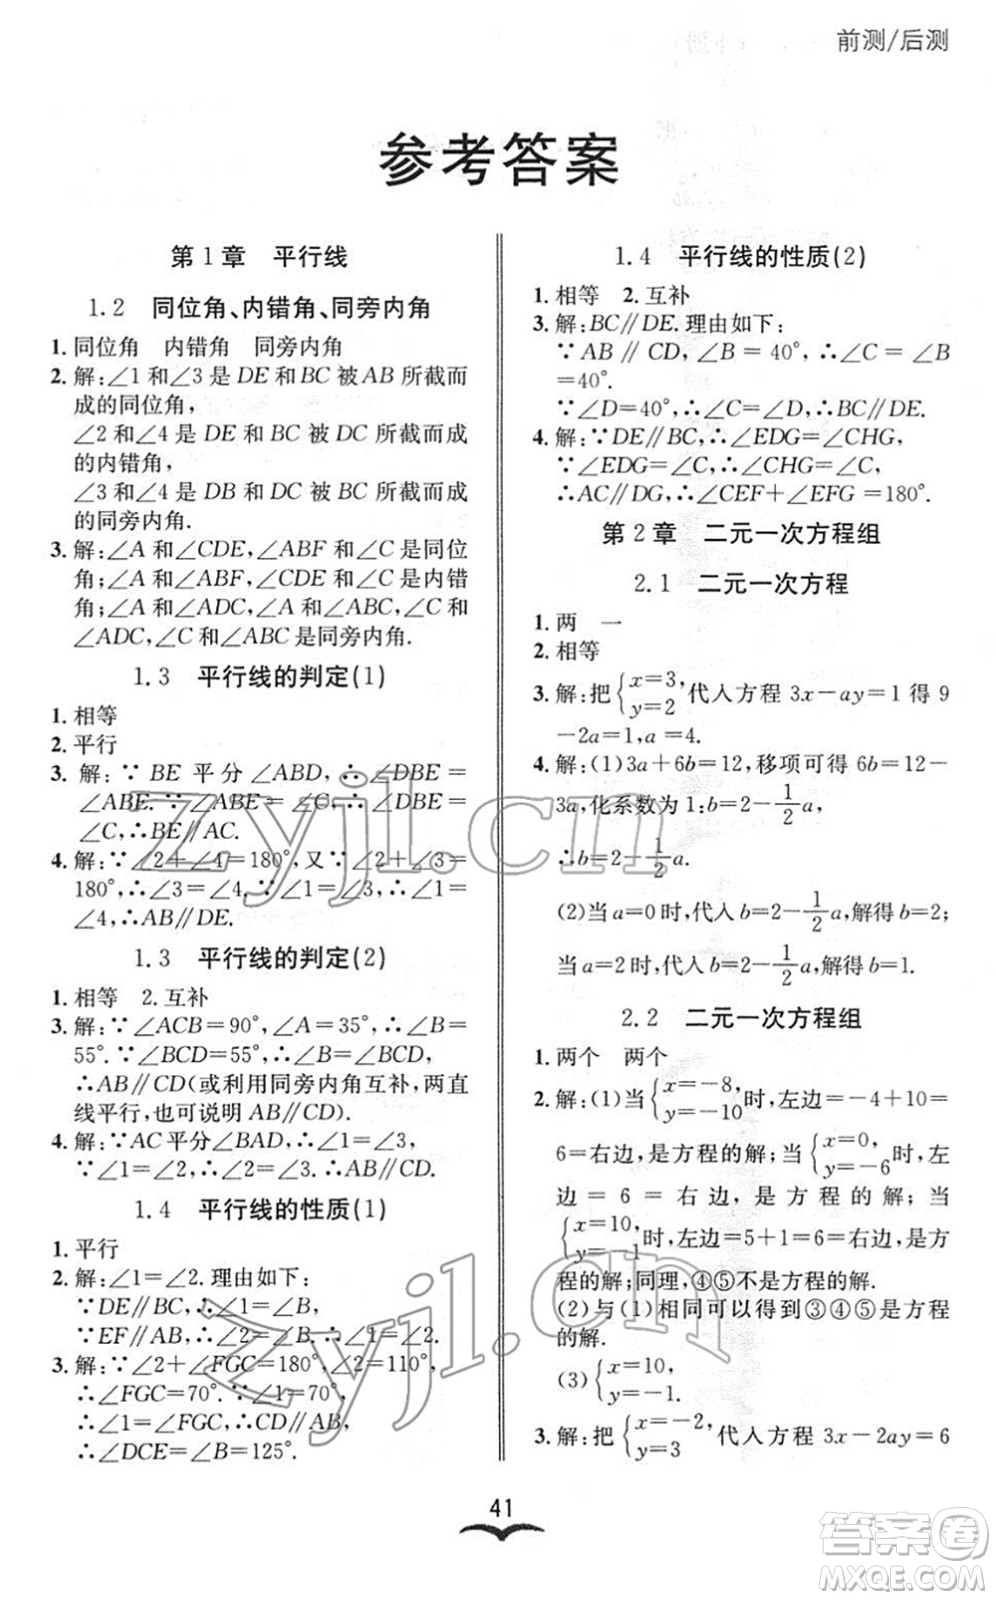 前测/后测
参考答案
第1章 平行线
1.2 同位角、内错角、同旁内角
1.同位角 内错角 同旁内角
2.解:∠1和∠3是DE和BC被AB所截而
成的同位角,
∠2和∠4是DE和BC被DC所截而成
的内错角,
∠3和∠4是DB和DC被BC所截而成
的同旁内角.
3.解:∠A和∠CDE,∠ABF和∠C是同位
角;∠A和∠ABF,∠CDE和∠C是内错
角;∠A和∠ADC,∠A和∠ABC,∠C和
∠ADC,∠C和∠ABC是同旁内角.
1.3 平行线的判定(1)
1.相等
2.平行
3.解:∵BE平分∠ABD,∴∠DBE=
∠ABE.∵∠ABE=∠C,∴∠DBE=
∠C,∴BE∥AC.
4.解:∵∠2+∠4=180°,又∵∠2+∠3=
180°,∴∠3=∠4,∵∠1=∠3,∴∠1=
∠4,∴AB∥DE.
1.3 平行线的判定(2)
1.相等 2.互补
3.解:∵∠ACB=90°,∠A=35°,∴∠B=
55°.∵∠BCD=55°,∴∠B=∠BCD,
∴AB∥CD(或利用同旁内角互补,两直
线平行,也可说明AB∥CD).
4.解:∵AC平分∠BAD,∴∠1=∠3,
∵∠1=∠2,∴∠2=∠3,∴AB∥CD.
1.4 平行线的性质(1)
1.平行
2.解:∠1=∠2.理由如下:
∵DE∥BC,∴∠1=∠B.
∵EF∥AB,∴∠2=∠B,∴∠1=∠2.
3.解:∵∠2+∠FGC=180°,∠2=110°,
∴∠FGC=70°.∵∠1=70°,
∴∠1=∠FGC,∴CD∥AB,
∴∠DCE=∠B=125°.
1.4 平行线的性质(2)
1.相等 2.互补
3.解:BC∥DE.理由如下:
∵AB∥CD,∠B=40°,∴∠C=∠B
=40°.
∵∠D=40°,∴∠C=∠D,∴BC∥DE.
4.解:∵DE∥BC,∴∠EDG=∠CHG,
∵∠EDG=∠C,∴∠CHG=∠C,
∴AC∥DG,∴∠CEF+∠EFG=180°.
第2章 二元一次方程组
2.1 二元一次方程
1.两 一
2.相等
3.解:把{x=3, y=2 代入方程3x-ay=1得9
-2a=1,a=4.
4.解:(1)3a+6b=12,移项可得6b=12-
3a,化系数为1:b=2-1/2a,
∴b=2-1/2a.
(2)当a=0时,代入b=2-1/2a,解得b=2;
当a=2时,代入b=2-1/2a,解得b=1.
2.2 二元一次方程组
1.两个 两个
2.解:(1)当{x=-8, y=-10 时,左边=-4+10=
6=右边,是方程的解;当{x=0, y=-6 时,左
边=6=右边,是方程的解;当
{x=10, y=-1 时,左边=5+1=6=右边,是方
程的解;同理,④⑤不是方程的解.
(2)与(1)相同可以得到③④⑤是方程
的解.
(3){x=10, y=-1.
3.解:把{x=-2, y=3 代入方程3x-2ay=6
41
zyjl.cn
zyjl.cn
答案圈
MXQE.COM